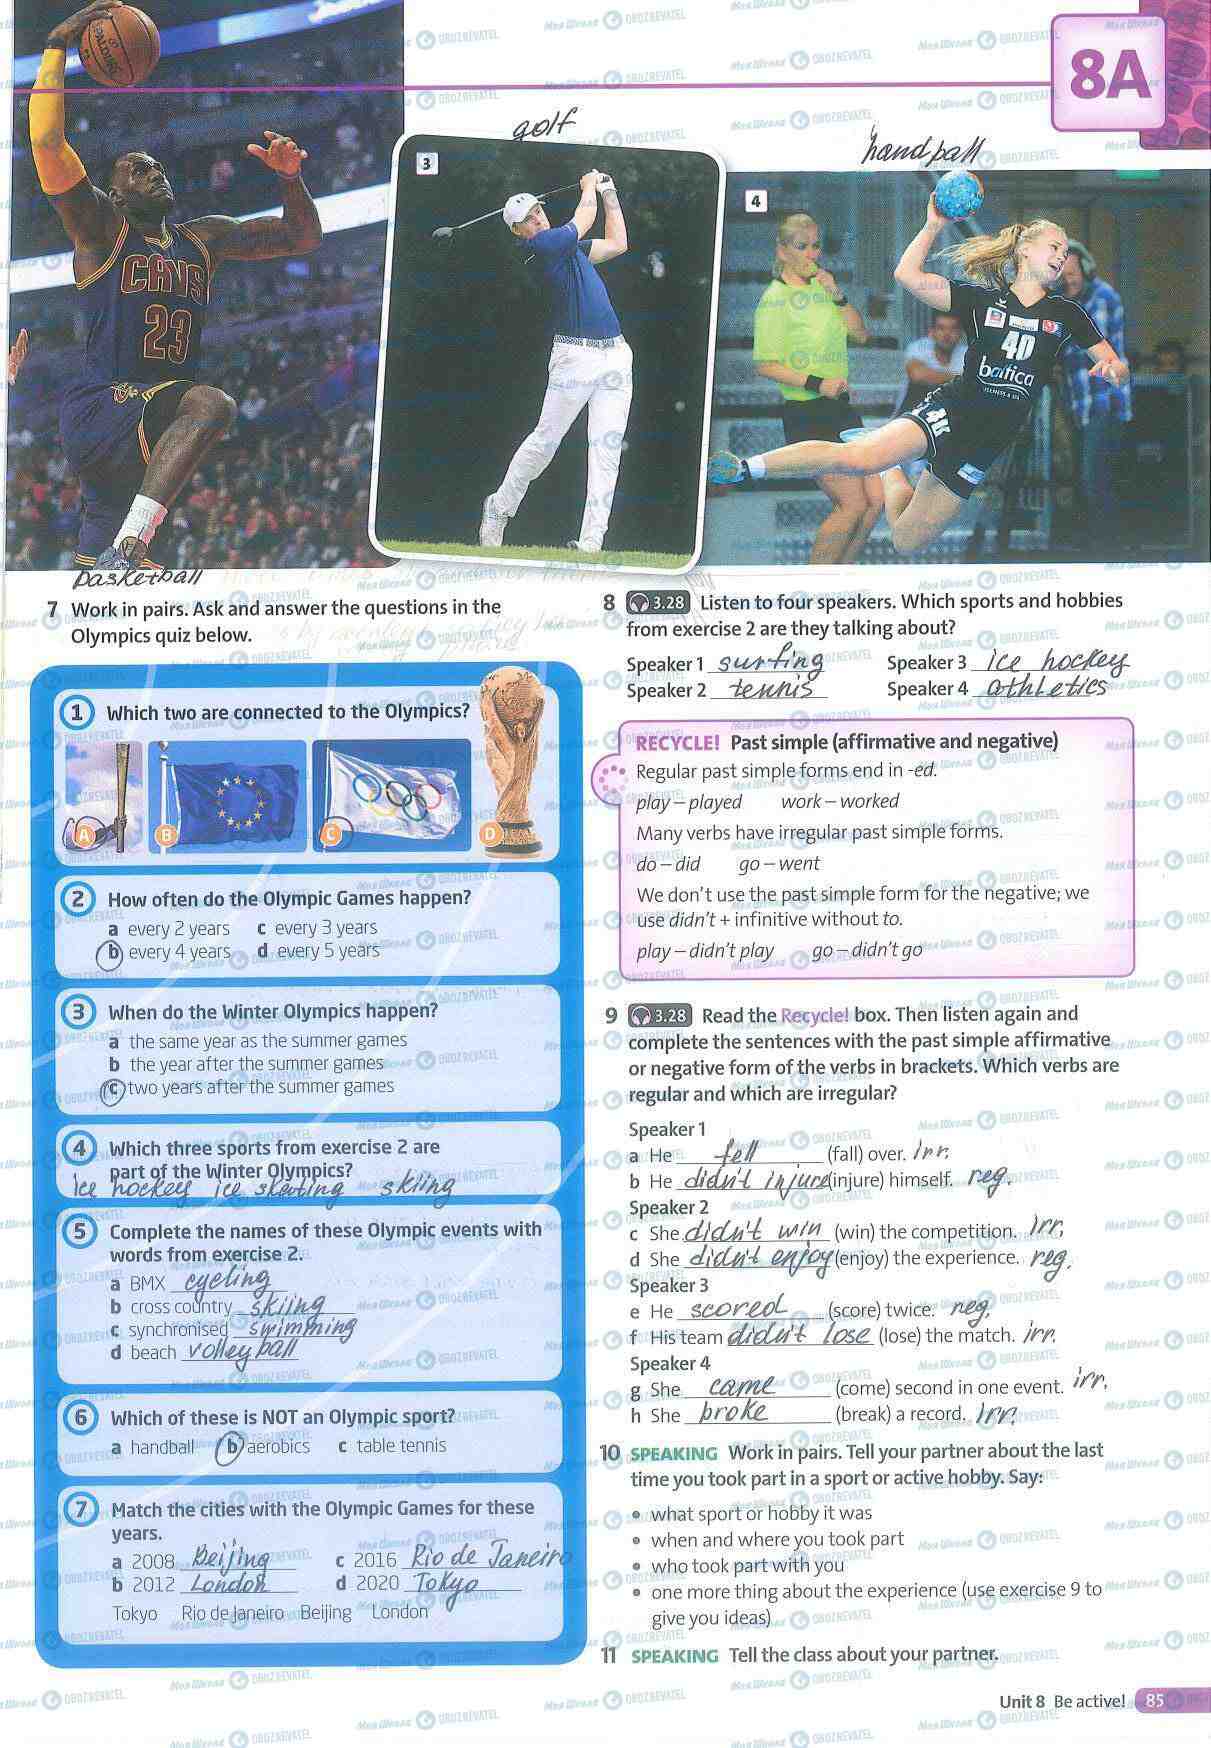 8A
SPALDING
golf
handball
3
4
CAVS
23
40
baltica
basketball
7 Work in pairs. Ask and answer the questions in the
Olympics quiz below.
1 Which two are connected to the Olympics?
A B C D
2 How often do the Olympic Games happen?
a every 2 years c every 3 years
b every 4 years d every 5 years
3 When do the Winter Olympics happen?
a the same year as the summer games
b the year after the summer games
c two years after the summer games
4 Which three sports from exercise 2 are
part of the Winter Olympics?
ice hockey ice skating skiing
5 Complete the names of these Olympic events with
words from exercise 2.
a BMX cycling
b cross country skiing
c synchronised swimming
d beach volleyball
6 Which of these is NOT an Olympic sport?
a handball b aerobics c table tennis
7 Match the cities with the Olympic Games for these
years.
a 2008 Beijing c 2016 Rio de Janeiro
b 2012 London d 2020 Tokyo
Tokyo Rio de Janeiro Beijing London
8 3.28 Listen to four speakers. Which sports and hobbies
from exercise 2 are they talking about?
Speaker 1 surfing Speaker 3 ice hockey
Speaker 2 tennis Speaker 4 athletics
RECYCLE! Past simple (affirmative and negative)
Regular past simple forms end in -ed.
play – played work – worked
Many verbs have irregular past simple forms.
do – did go – went
We don't use the past simple form for the negative; we
use didn't + infinitive without to.
play – didn't play go – didn't go
9 3.28 Read the Recycle! box. Then listen again and
complete the sentences with the past simple affirmative
or negative form of the verbs in brackets. Which verbs are
regular and which are irregular?
Speaker 1
a He fell (fall) over. irr.
b He didn't injure (injure) himself. reg.
Speaker 2
c She didn't win (win) the competition. irr.
d She didn't enjoy (enjoy) the experience. reg.
Speaker 3
e He scored (score) twice. reg.
f His team didn't lose (lose) the match. irr.
Speaker 4
g She came (come) second in one event. irr.
h She broke (break) a record. irr.
10 SPEAKING Work in pairs. Tell your partner about the last
time you took part in a sport or active hobby. Say:
• what sport or hobby it was
• when and where you took part
• who took part with you
• one more thing about the experience (use exercise 9 to
give you ideas)
11 SPEAKING Tell the class about your partner.
Unit 8 Be active! 85
OBOZREVATEL